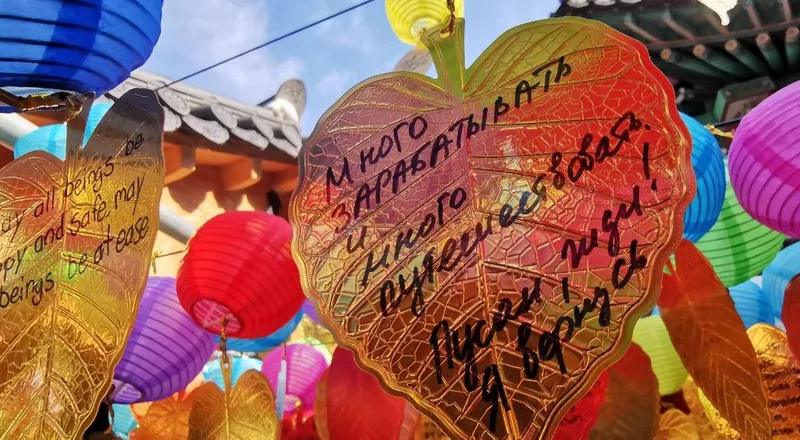 ay all beings be
ppy and safe, may
beings be at ease
Много
ЗАРАБАТЫВАТЬ
и
много
путешествовать.
Пусан, жди!
Я вернусь